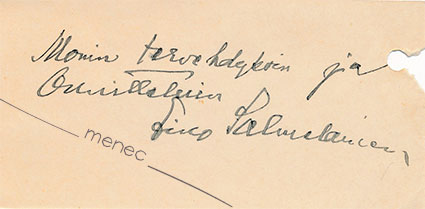 Monin tervehdyksin ja
Onnitteluin
Eino Salmelainen
menec